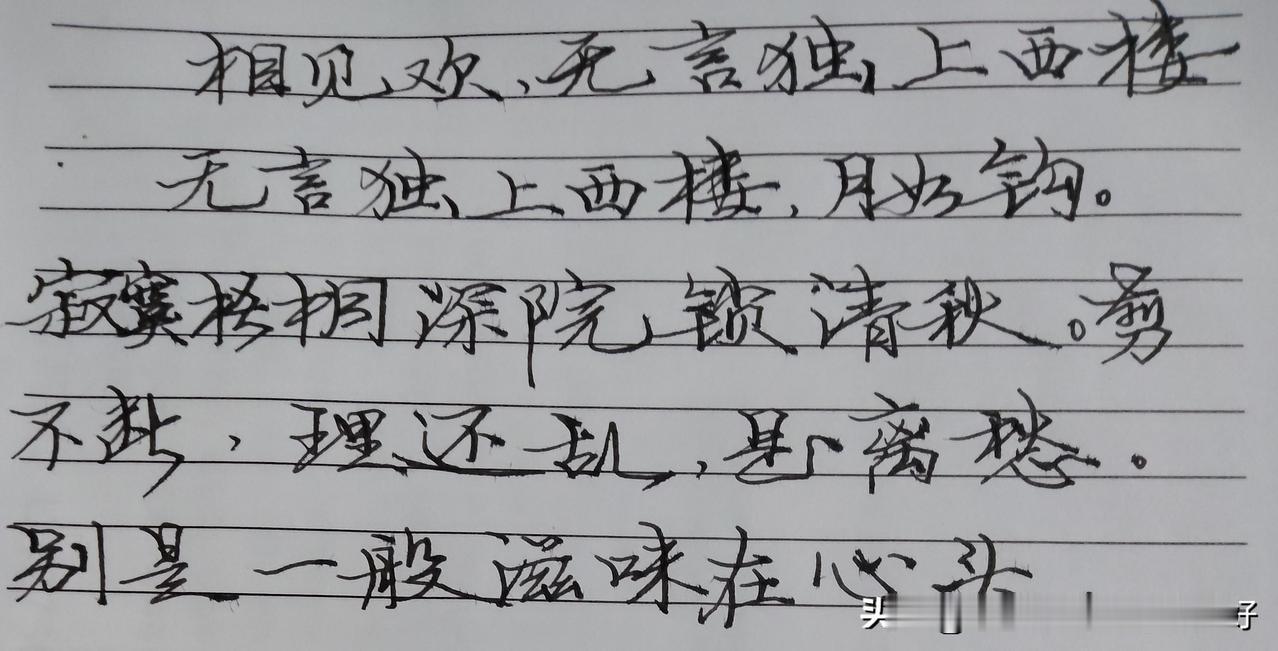 相见欢,无言独上西楼
无言独上西楼,月如钩。
寂寞梧桐深院锁清秋。剪
不断,理还乱,是离愁。
别是一般滋味在心头
头 子